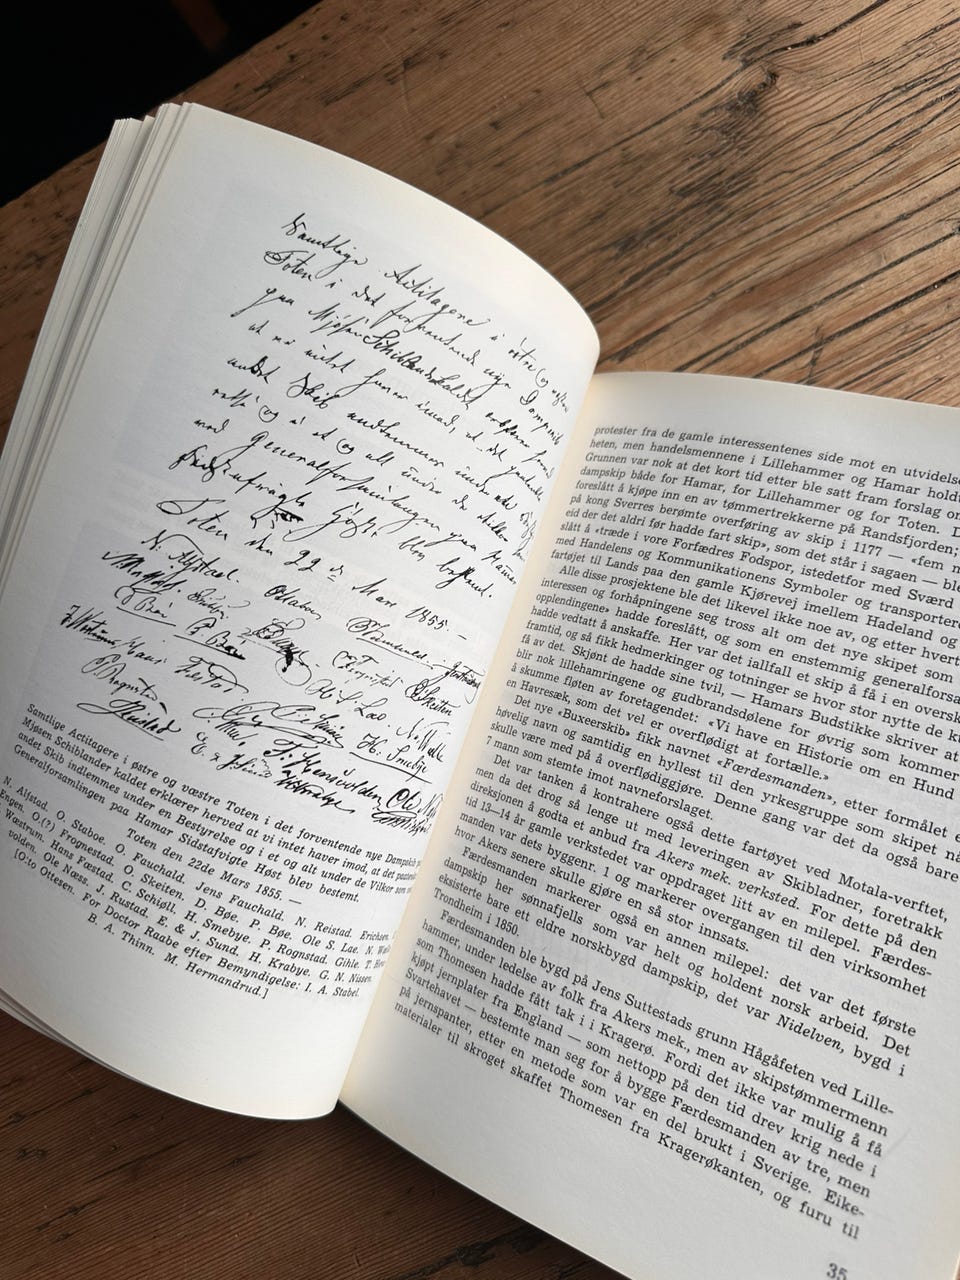 Samtlige Actitagere i østre og væstre
Toten i det forventende nye Dampskib
paa Mjøsen Schiblander kaldet erklærer herved
at vi intet haver imod, at det
andet Skib indlemmes under en
og i et og alt under de Vilkor som
ved Generalforsamlingen paa Hamar
Sidstafvigte Høst blev bestemt.
Toten den 22de Mars 1855. —
Samtlige Actitagere i østre og væstre Toten i det forventende nye Dampskib
Mjøsen Schiblander kaldet erklærer herved at vi intet haver imod, at det
andet Skib indlemmes under en Bestyrelse og i et og alt under de Vilkor som
Generalforsamlingen paa Hamar Sidstafvigte Høst blev bestemt.
Toten den 22de Mars 1855. —
N. Alfstad. O. Staboe. O. Fauchald. Jens Fauchald. N. Reistad. Erichsen.
Engen. O.(?) Frognestad. O. Skeiten. D. Bøe. P. Bøe. Ole S. Lae. N.
Wæstrum. Hans Fœstad. C. Schiøll. H. Smebye. P. Rognstad. Gihle. T.
volden. Ole Næss. J. Rustad. E. & J. Sund. H. Krabye. G. N. Nissen.
[O:to Ottesen. For Doctor Raabe efter Bemyndigelse: I. A. Stabel.
B. A. Thinn. M. Hermandrud.]
protester fra de gamle interessentenes side mot en utvidelse
heten, men handelsmennene i Lillehammer og Hamar holdt
Grunnen var nok at det kort tid etter ble satt fram forslag om
dampskip både for Hamar, for Lillehammer og for Toten. D
foreslått å kjøpe inn en av tømmertrekkerne på Randsfjorden;
på kong Sverres berømte overføring av skip i 1177 — «fem
eid der det aldri før hadde fart skip», som det står i sagaen — ble
slått å «træde i vore Forfædres Fodspor, istedetfor med Sværd
med Handelens og Kommunikationens Symboler og transportere
fartøjet til Lands paa den gamle Kjørevej imellem Hadeland og
Alle disse prosjektene ble det likevel ikke noe av, og etter hvert
interessen og forhåpningene seg tross alt om det nye skipet som
opplendingene» hadde foreslått, og som en enstemmig generalforsa
hadde vedtatt å anskaffe. Her var det iallfall et skip å få i en oversk
framtid, og så fikk hedmerkinger og totninger se hvor stor nytte de
få av det. Skjønt de hadde sine tvil, — Hamars Budstikke skriver at
blir nok lillehamringene og gudbrandsdølene for øvrig som kommer
å skumme fløten av foretagendet: «Vi have en Historie om en Hund
en Havresæk, som det vel er overflødigt at fortælle.»
Det nye «Buxeerskib» fikk navnet «Færdesmanden», etter formålet
høvelig navn og samtidig en hyllest til den yrkesgruppe som skipet
skulle være med på å overflødiggjøre. Denne gang var det da også bare
7 mann som stemte imot navneforslaget.
Det var tanken å kontrahere også dette fartøyet ved Motala-verftet,
men da det drog så lenge ut med leveringen av Skibladner, foretrakk
direksjonen å godta et anbud fra Akers mek. verksted. For dette på den
tid 13–14 år gamle verkstedet var oppdraget litt av en milepel. Færdes-
manden var dets byggenr. 1 og markerer overgangen til den virksomhet
hvor Akers senere skulle gjøre en så stor innsats.
Færdesmanden markerer også en annen milepel: det var det første
dampskip her sønnafjells som var helt og holdent norsk arbeid. Det
eksisterte bare ett eldre norskbygd dampskip, det var Nidelven, bygd i
Trondheim i 1850.
Færdesmanden ble bygd på Jens Suttestads grunn Hågåfeten ved Lille-
hammer, under ledelse av folk fra Akers mek., men av skipstømmermenn
som Thomesen hadde fått tak i i Kragerø. Fordi det ikke var mulig å få
kjøpt jernplater fra England — som nettopp på den tid drev krig nede i
Svartehavet — bestemte man seg for å bygge Færdesmanden av tre, men
på jernspanter, etter en metode som var en del brukt i Sverige. Eike-
materialer til skroget skaffet Thomesen fra Kragerøkanten, og furu til
35